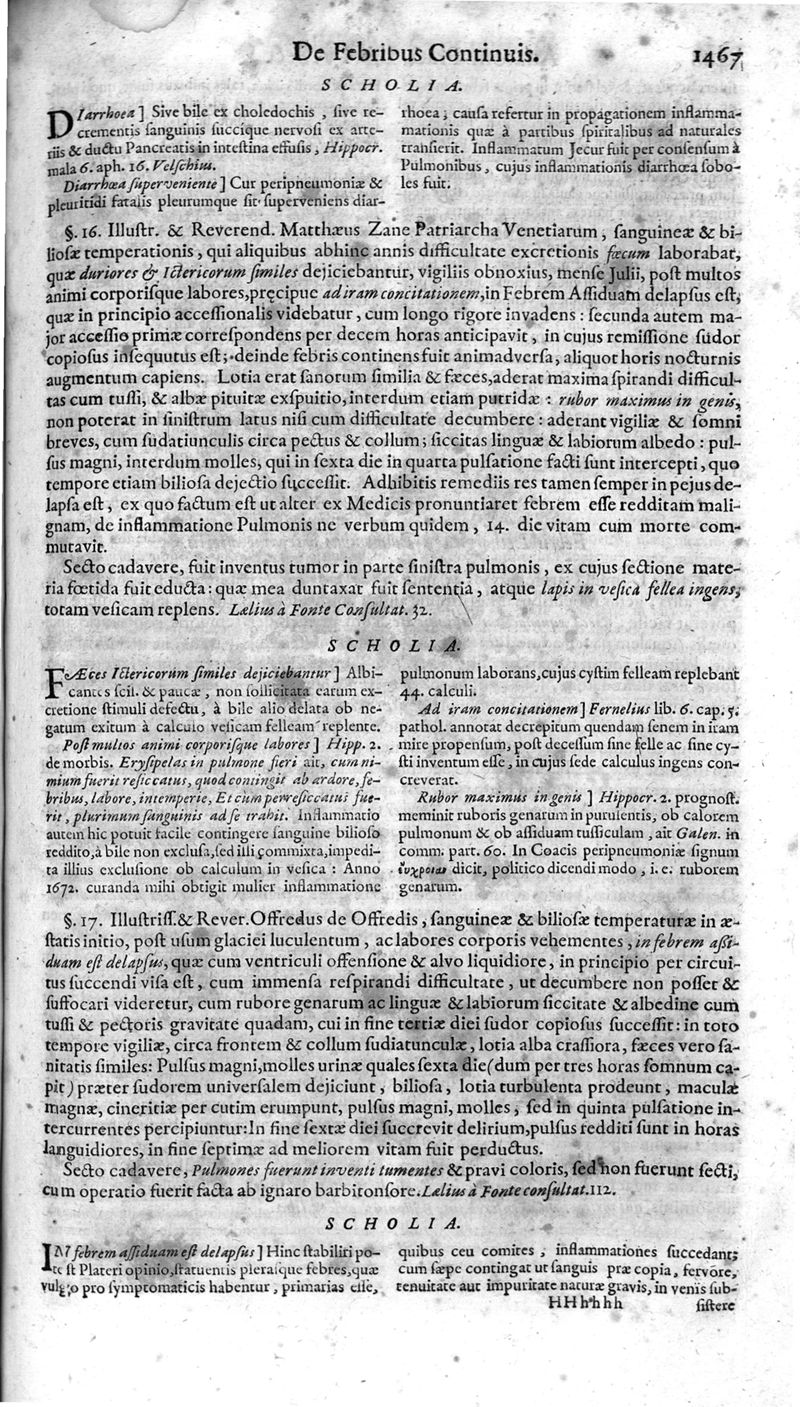 De Febribus Continuis. 1467
SCHOLIA.
DIarrhoea] Sive bile ex choledochis, ſive re-
crementis ſanguinis ſuccique nervoſi ex arte-
riis & ductu Pancreatis in inteſtina effuſis, Hippocr.
mala 6. aph. 16. Velſchius.
Diarrhœa ſuperveniente] Cur peripneumoniæ &
pleuritidi fatalis pleurumque ſit ſuperveniens diar-
rhoea; cauſa refertur in propagationem inflamma-
mationis quæ à partibus ſpiritalibus ad naturales
tranſierit. Inflammatum Jecur fuit per conſenſum à
Pulmonibus, cujus inflammationis diarrhœa ſobo-
les fuit.
§. 16. Illuſtr. & Reverend. Matthæus Zane Patriarcha Venetiarum, ſanguineæ & bi-
lioſæ temperationis, qui aliquibus abhinc annis difficultate excretionis fæcum laborabat,
quæ duriores & Ictericorum ſimiles dejiciebantur, vigiliis obnoxius, menſe Julii, poſt multos
animi corporiſque labores, pręcipue ad iram concitationem, in Febrem Aſſiduam delapſus eſt,
quæ in principio acceſſionalis videbatur, cum longo rigore invadens: ſecunda autem ma-
jor acceſſio primæ correſpondens per decem horas anticipavit, in cujus remiſſione ſudor
copioſus inſequutus eſt; deinde febris continens fuit animadverſa, aliquot horis nocturnis
augmentum capiens. Lotia erat ſanorum ſimilia & fæces, aderat maxima ſpirandi difficul-
tas cum tuſſi, & albæ pituitæ exſpuitio, interdum etiam putridæ: rubor maximus in genis,
non poterat in ſiniſtrum latus niſi cum difficultate decumbere: aderant vigiliæ & ſomni
breves, cum ſudatiunculis circa pectus & collum; ſiccitas linguæ & labiorum albedo: pul-
ſus magni, interdum molles, qui in ſexta die in quarta pulſatione facti ſunt intercepti, quo
tempore etiam bilioſa dejectio ſucceſſit. Adhibitis remediis res tamen ſemper in pejus de-
lapſa eſt, ex quo factum eſt ut alter ex Medicis pronuntiaret febrem eſſe redditam mali-
gnam, de inflammatione Pulmonis ne verbum quidem, 14. die vitam cum morte com-
mutavit.
Secto cadavere, fuit inventus tumor in parte ſiniſtra pulmonis, ex cujus ſectione mate-
ria fœtida fuit educta: quæ mea duntaxat fuit ſententia, atque lapis in veſica fellea ingens,
totam veſicam replens. Lælius à Fonte Conſultat. 32.
SCHOLIA.
FÆces Ictericorum ſimiles dejiciebantur] Albi-
cantes ſcil. & paucæ, non ſollicitata earum ex-
cretione ſtimuli defectu, à bile alio delata ob ne-
gatum exitum à calculo veſicam felleam replente.
Poſt multos animi corporiſque labores] Hipp. 2.
de morbis. Eryſipelas in pulmone fieri ait, cum ni-
mium fuerit reſiccatus, quod contingit ab ardore, fe-
bribus, labore, intemperie, Et cum perreſiccatus fue-
rit, plurimum ſanguinis ad ſe trahit. Inflammatio
autem hic potuit facile contingere ſanguine bilioſo
reddito, à bile non excluſa, ſed illi commixta, impedi-
ta illius excluſione ob calculum in veſica: Anno
1672. curanda mihi obtigit mulier inflammatione
pulmonum laborans, cujus cyſtim felleam replebant
44. calculi.
Ad iram concitationem] Fernelius lib. 6. cap. 5.
pathol. annotat decrepitum quendam ſenem in iram
mire propenſum, poſt deceſſum ſine felle ac ſine cy-
ſti inventum eſſe, in cujus ſede calculus ingens con-
creverat.
Rubor maximus in genis] Hippocr. 2. prognoſt.
meminit ruboris genarum in purulentis, ob calorem
pulmonum & ob aſſiduam tuſſiculam, ait Galen. in
comm. part. 60. In Coacis peripneumoniæ ſignum
dicit, politico dicendi modo, i. e. ruborem
genarum.
§. 17. Illuſtriſſ. & Rever. Offredus de Offredis, ſanguineæ & bilioſæ temperaturæ in æ-
ſtatis initio, poſt uſum glaciei luculentum, ac labores corporis vehementes, in febrem aſſi-
duam eſt delapſus, quæ cum ventriculi offenſione & alvo liquidiore, in principio per circui-
tus ſuccendi viſa eſt, cum immenſa reſpirandi difficultate, ut decumbere non poſſet &
ſuffocari videretur, cum rubore genarum ac linguæ & labiorum ſiccitate & albedine cum
tuſſi & pectoris gravitate quadam, cui in fine tertiæ diei ſudor copioſus ſucceſſit: in toto
tempore vigiliæ, circa frontem & collum ſudiatunculæ, lotia alba craſſiora, fæces vero ſa-
nitatis ſimiles: Pulſus magni, molles urinæ quales ſexta die (dum per tres horas ſomnum ca-
pit) præter ſudorem univerſalem dejiciunt, bilioſa, lotia turbulenta prodeunt, maculæ
magnæ, cineritiæ per cutim erumpunt, pulſus magni, molles, ſed in quinta pulſatione in-
tercurrentes percipiuntur: In fine ſextæ diei ſuccrevit delirium, pulſus redditi ſunt in horas
languidiores, in fine ſeptimæ ad meliorem vitam fuit perductus.
Secto cadavere, Pulmones fuerunt inventi tumentes & pravi coloris, ſed non fuerunt ſecti,
cum operatio fuerit facta ab ignaro barbitonſore. Lælius à Fonte conſultat. 112.
SCHOLIA.
IN febrem aſſiduam eſt delapſus] Hinc ſtabiliri po-
teſt Plateri opinio, ſtatuentis pleraſque febres, quæ
vulgo pro ſymptomaticis habentur, primarias eſſe,
quibus ceu comites, inflammationes ſuccedant;
cum ſæpe contingat ut ſanguis præ copia, fervore,
tenuitate aut impuritate naturæ gravis, in venis ſub-
HHhhhh ſiſtere